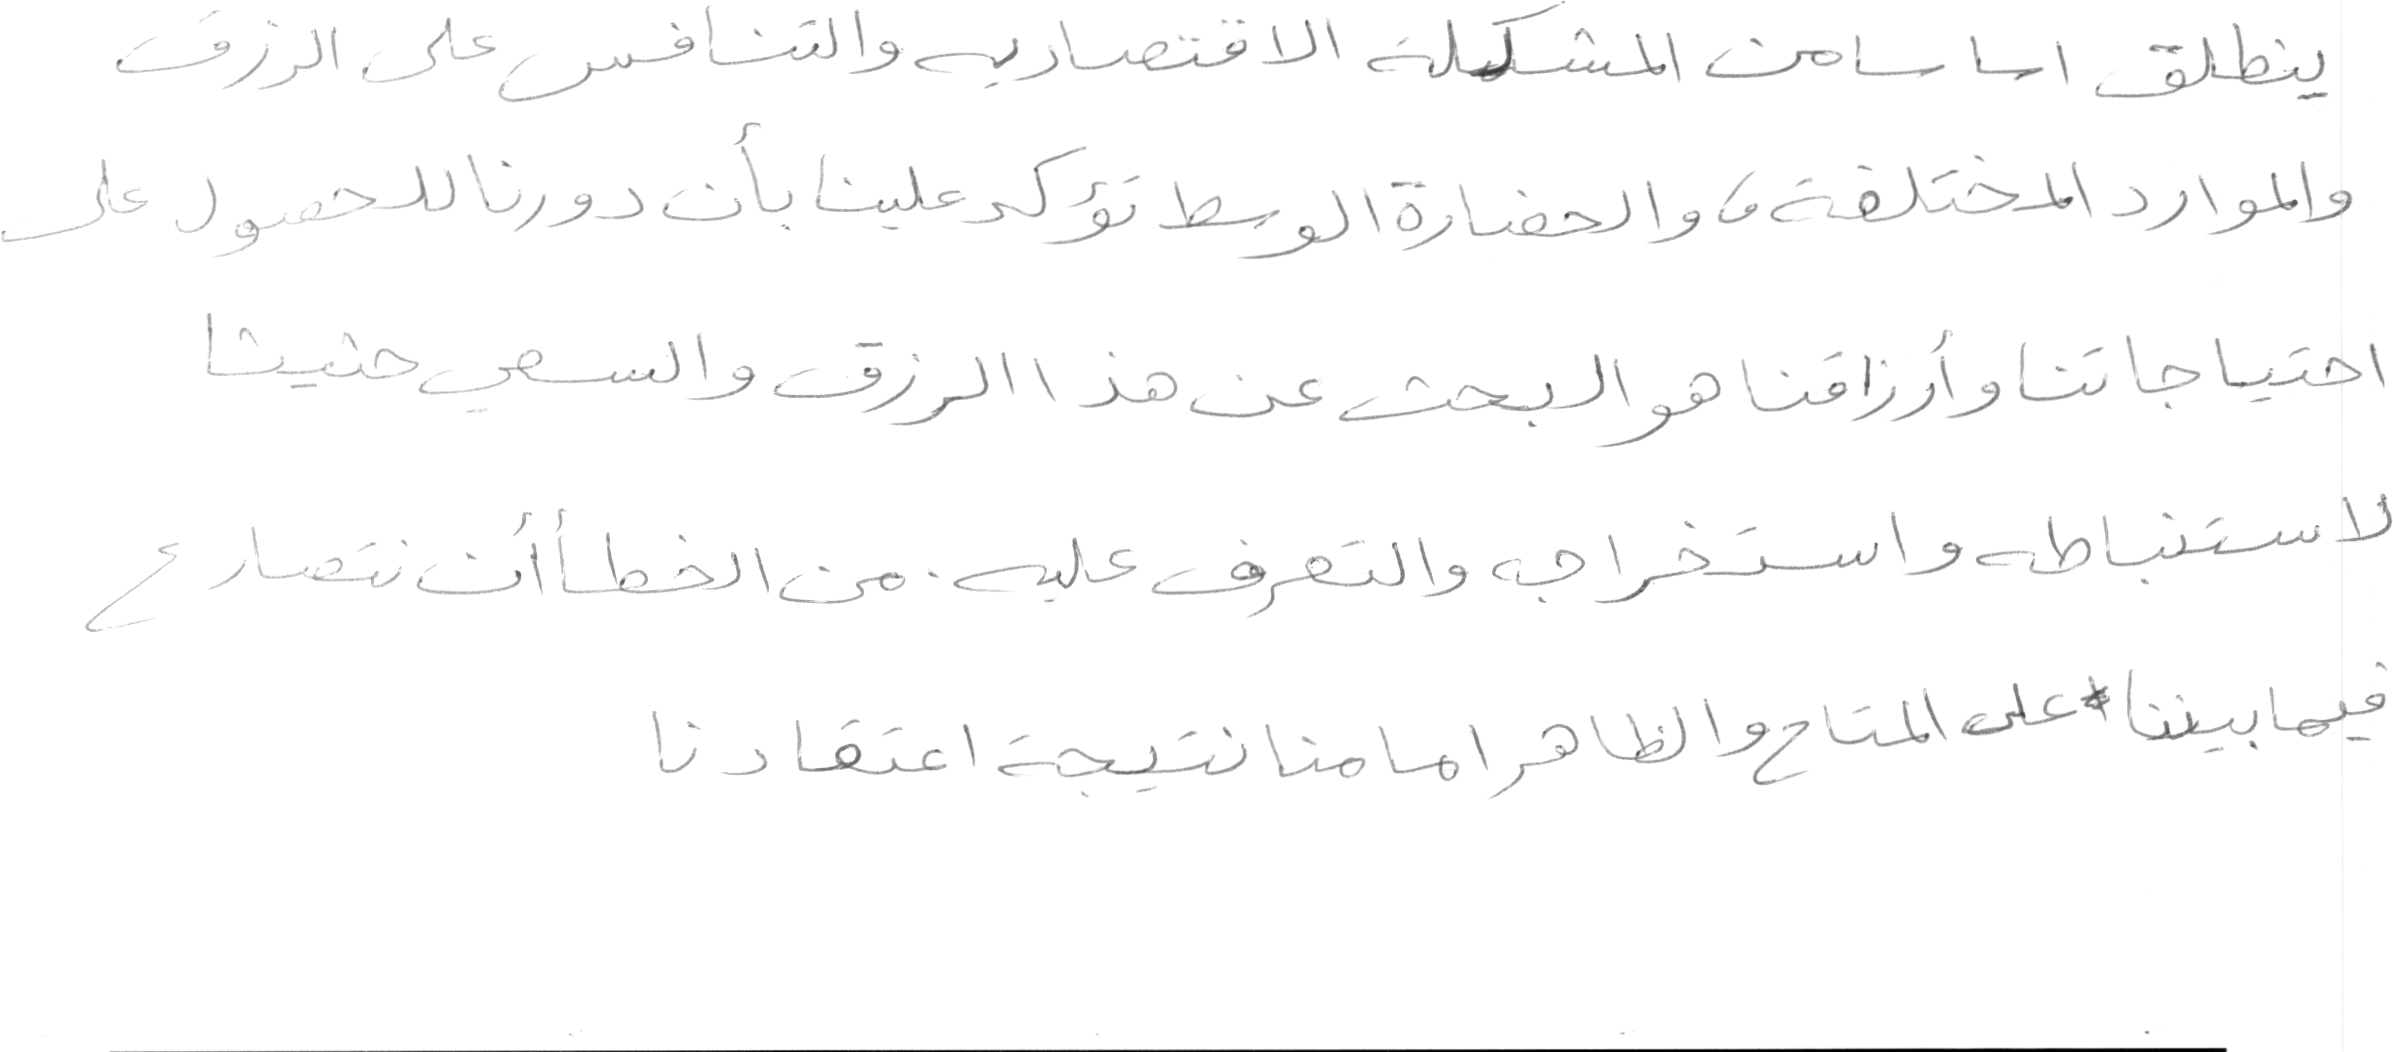 ينطلق اساسا من المشكلة الاقتصاديه والتنافس على الرزق
والموارد المختلفة، والحضارة الوسط تؤكد علينا بأن دورنا للحصول على
احتياجاتنا وأرزاقنا هو البحث عن هذا الرزق والسعي حثيثا
لاستنباطه واستخراجه والتعرف عليه. من الخطأ أن نتصارع
فيما بيننا على المتاح والظاهر امامنا نتيجة اعتقادنا